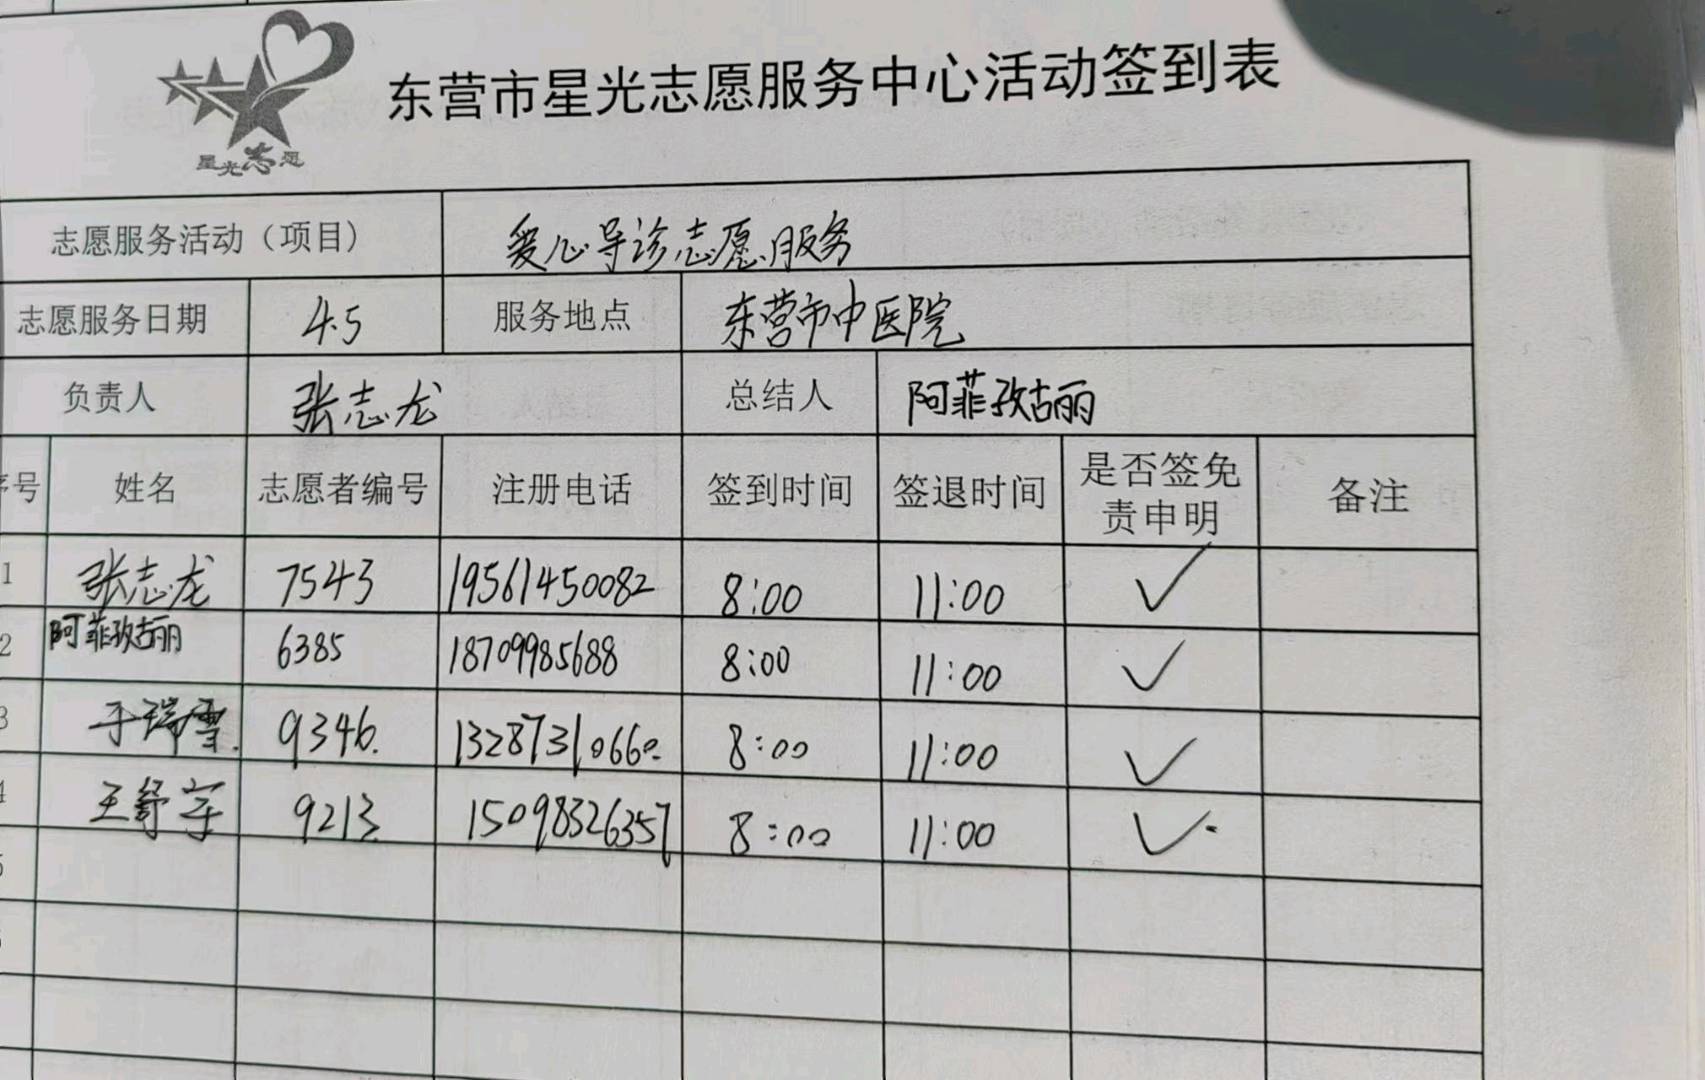 东营市星光志愿服务中心活动签到表
星光志愿
志愿服务活动（项目） 爱心导诊志愿服务
志愿服务日期 4.5 服务地点 东营市中医院
负责人 张志龙 总结人 阿菲孜古丽
序号 姓名 志愿者编号 注册电话 签到时间 签退时间 是否签免责申明 备注
1 张志龙 7543 19561450082 8:00 11:00 ✓
2 阿菲孜古丽 6385 18709985688 8:00 11:00 ✓
3 于瑞雪. 9346. 13287310660. 8:00 11:00 ✓
4 王舒 9213 15098326357 8:00 11:00 ✓
5